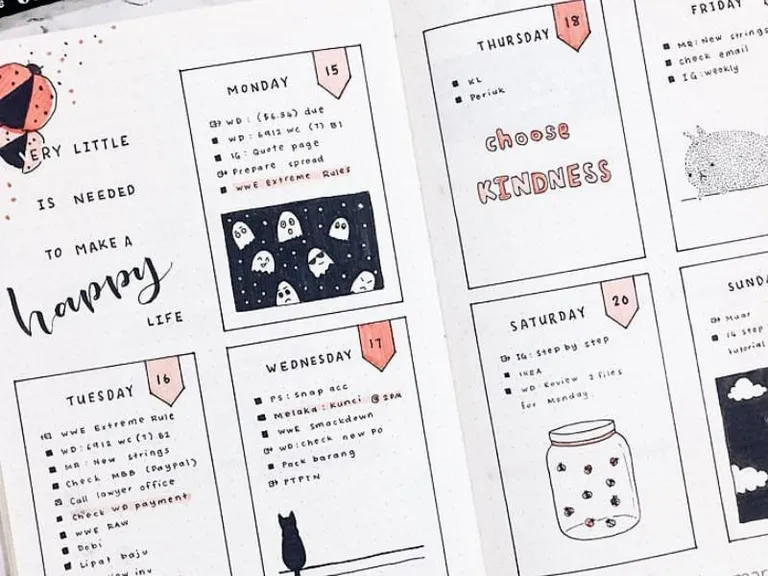 VERY LITTLE
IS NEEDED
TO MAKE A
happy
LIFE
MONDAY
15
WD: (56.34) due
WD: 6912 WC (T) B1
IG: Quote page
Prepare spread
WWE Extreme Rules
TUESDAY
16
WWE Extreme Rule
WD: 6912 WC (T) B2
MR: New strings
Check MBB (Paypal)
Call lawyer office
Check WD payment
WWE RAW
Dobi
Lipat baju
inv
WEDNESDAY
17
PS: Snap acc
Melaka: Kunci @ 2PM
WWE Smackdown
WD: check new PO
Pack barang
PTPTN
THURSDAY
18
KL
Periuk
choose
KINDNESS
FRIDAY
MR: New strings
check email
IG: weekly
SATURDAY
20
IG: step by step
IKEA
WD: Review 2 files
for Monday.
SUNDA
Muar
IG step
tutorial